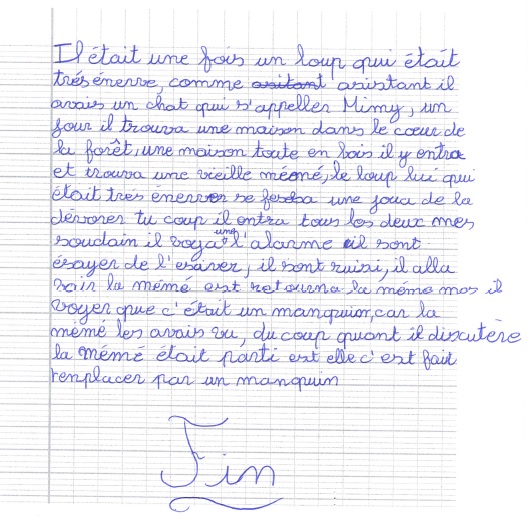 Il était une fois un loup qui était
très énerve, comme asistant il
avais un chat qui s'appeller Mimy, un
jour il trouva une maison dans le cœur de
la forêt, une maison toute en bois il y entra
et trouva une vieille mémé, le loup lui qui
était très énerver se une joua de la
dévorer tu coup il entra tous les deux mes
soudain il voya une l'alarme il sont
ésayer de l'esaver, il sont ruisi, il alla
voir la mémé est retourna la mémé mos il
voyer que c'était un manquin, car la
mémé les avais vu, du coup quant il discutère
la mémé était parti est elle c'est fait
remplacer par un manquin
Fin